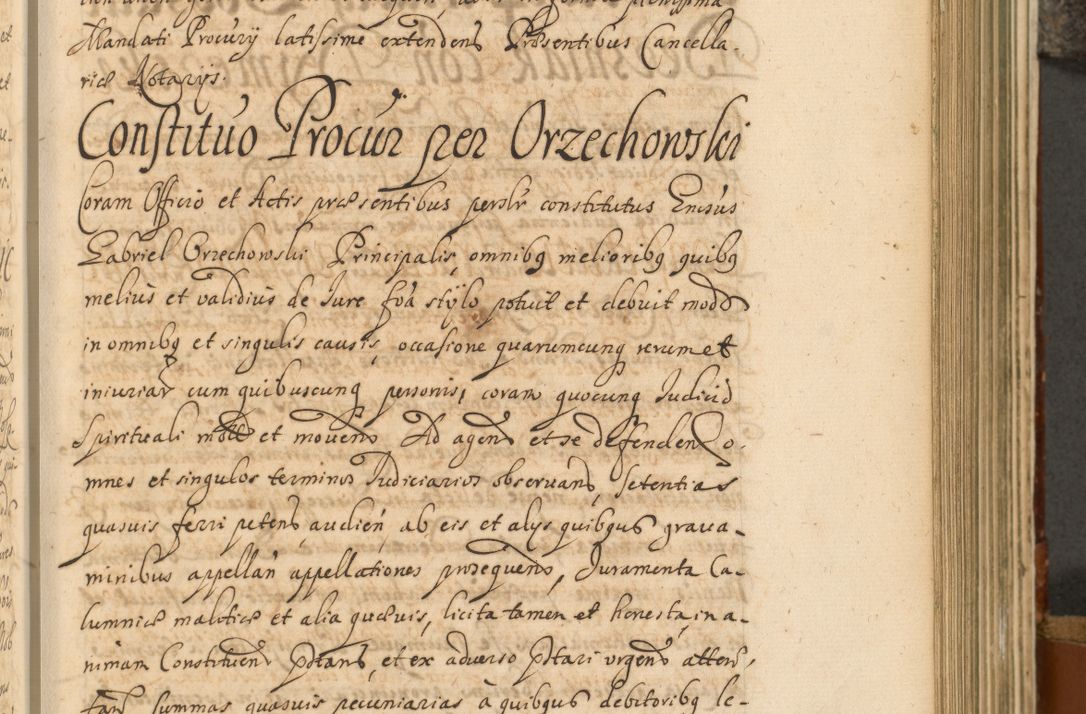 Mandati Procurÿ latissimè extendens Præsentibus Cancella-
riæ Notarÿs.
Constituo Procur per Orzechowski
Coram Officio et Actis præsentibus personlr constitutus
Gabriel Orzechowski Principalis, omnibq melioribq quibq
melius et validius de Jure foa stylo potuit et debuit modo
in omnibq et singulis causis, occasione quarumcunq rerum et
iniuriar cum quibuscunq personis, coram quocunq Judicio
Spirituali et movend Ad agend et se defendend o-
mnes et singulos terminos Judiciarios observand, Setentias
quasuis ferri petend, audien ab eis et alÿs quibqus grava-
minibus appellan appellationes prosequend, Juramenta Ca-
lumniæ malitiæ et alia quæuis, licita tamen et honesta, in a-
nimam Constituen Pstand, et ex adverso Pstari urgend
summas quasuis pecuniarias à quibqus debitoribq le-